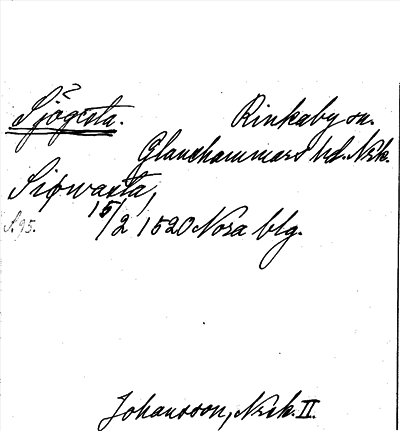 Sjögesta. Rinkaby sn.
Glanshammars hd. Nrk.
Siøwastа,
S. 95. 15/2 1520 Nora blg.
Johansson, Nrk. II.